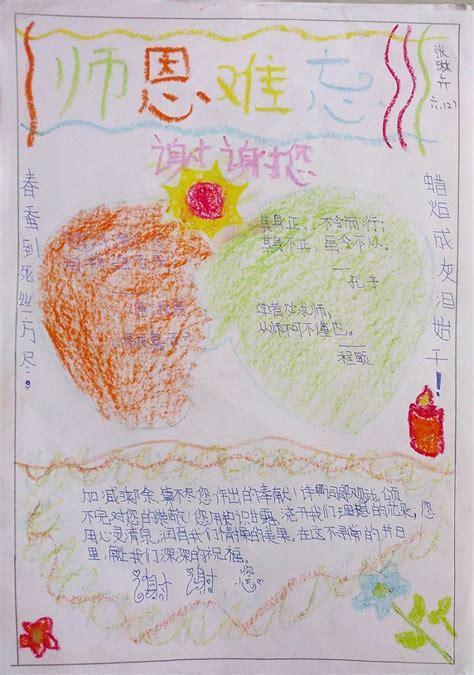 师恩难忘
张琳卉
六.(2)
谢谢您
春蚕到死丝方尽。
蜡炬成灰泪始干!
其身正,不令而行;
其身不正,虽令不从
— 孔子
学者必求师,
从师不可不谨也。
— 程颐
加减乘除,算不尽您作出的奉献!诗词歌赋,颂
不完对您的您用知识甘露,浇开我们理想的花朵,您
用心灵清泉,润育我们情操的美果。在这不寻常的节日
里,献上我们深深的祝福。
谢谢您